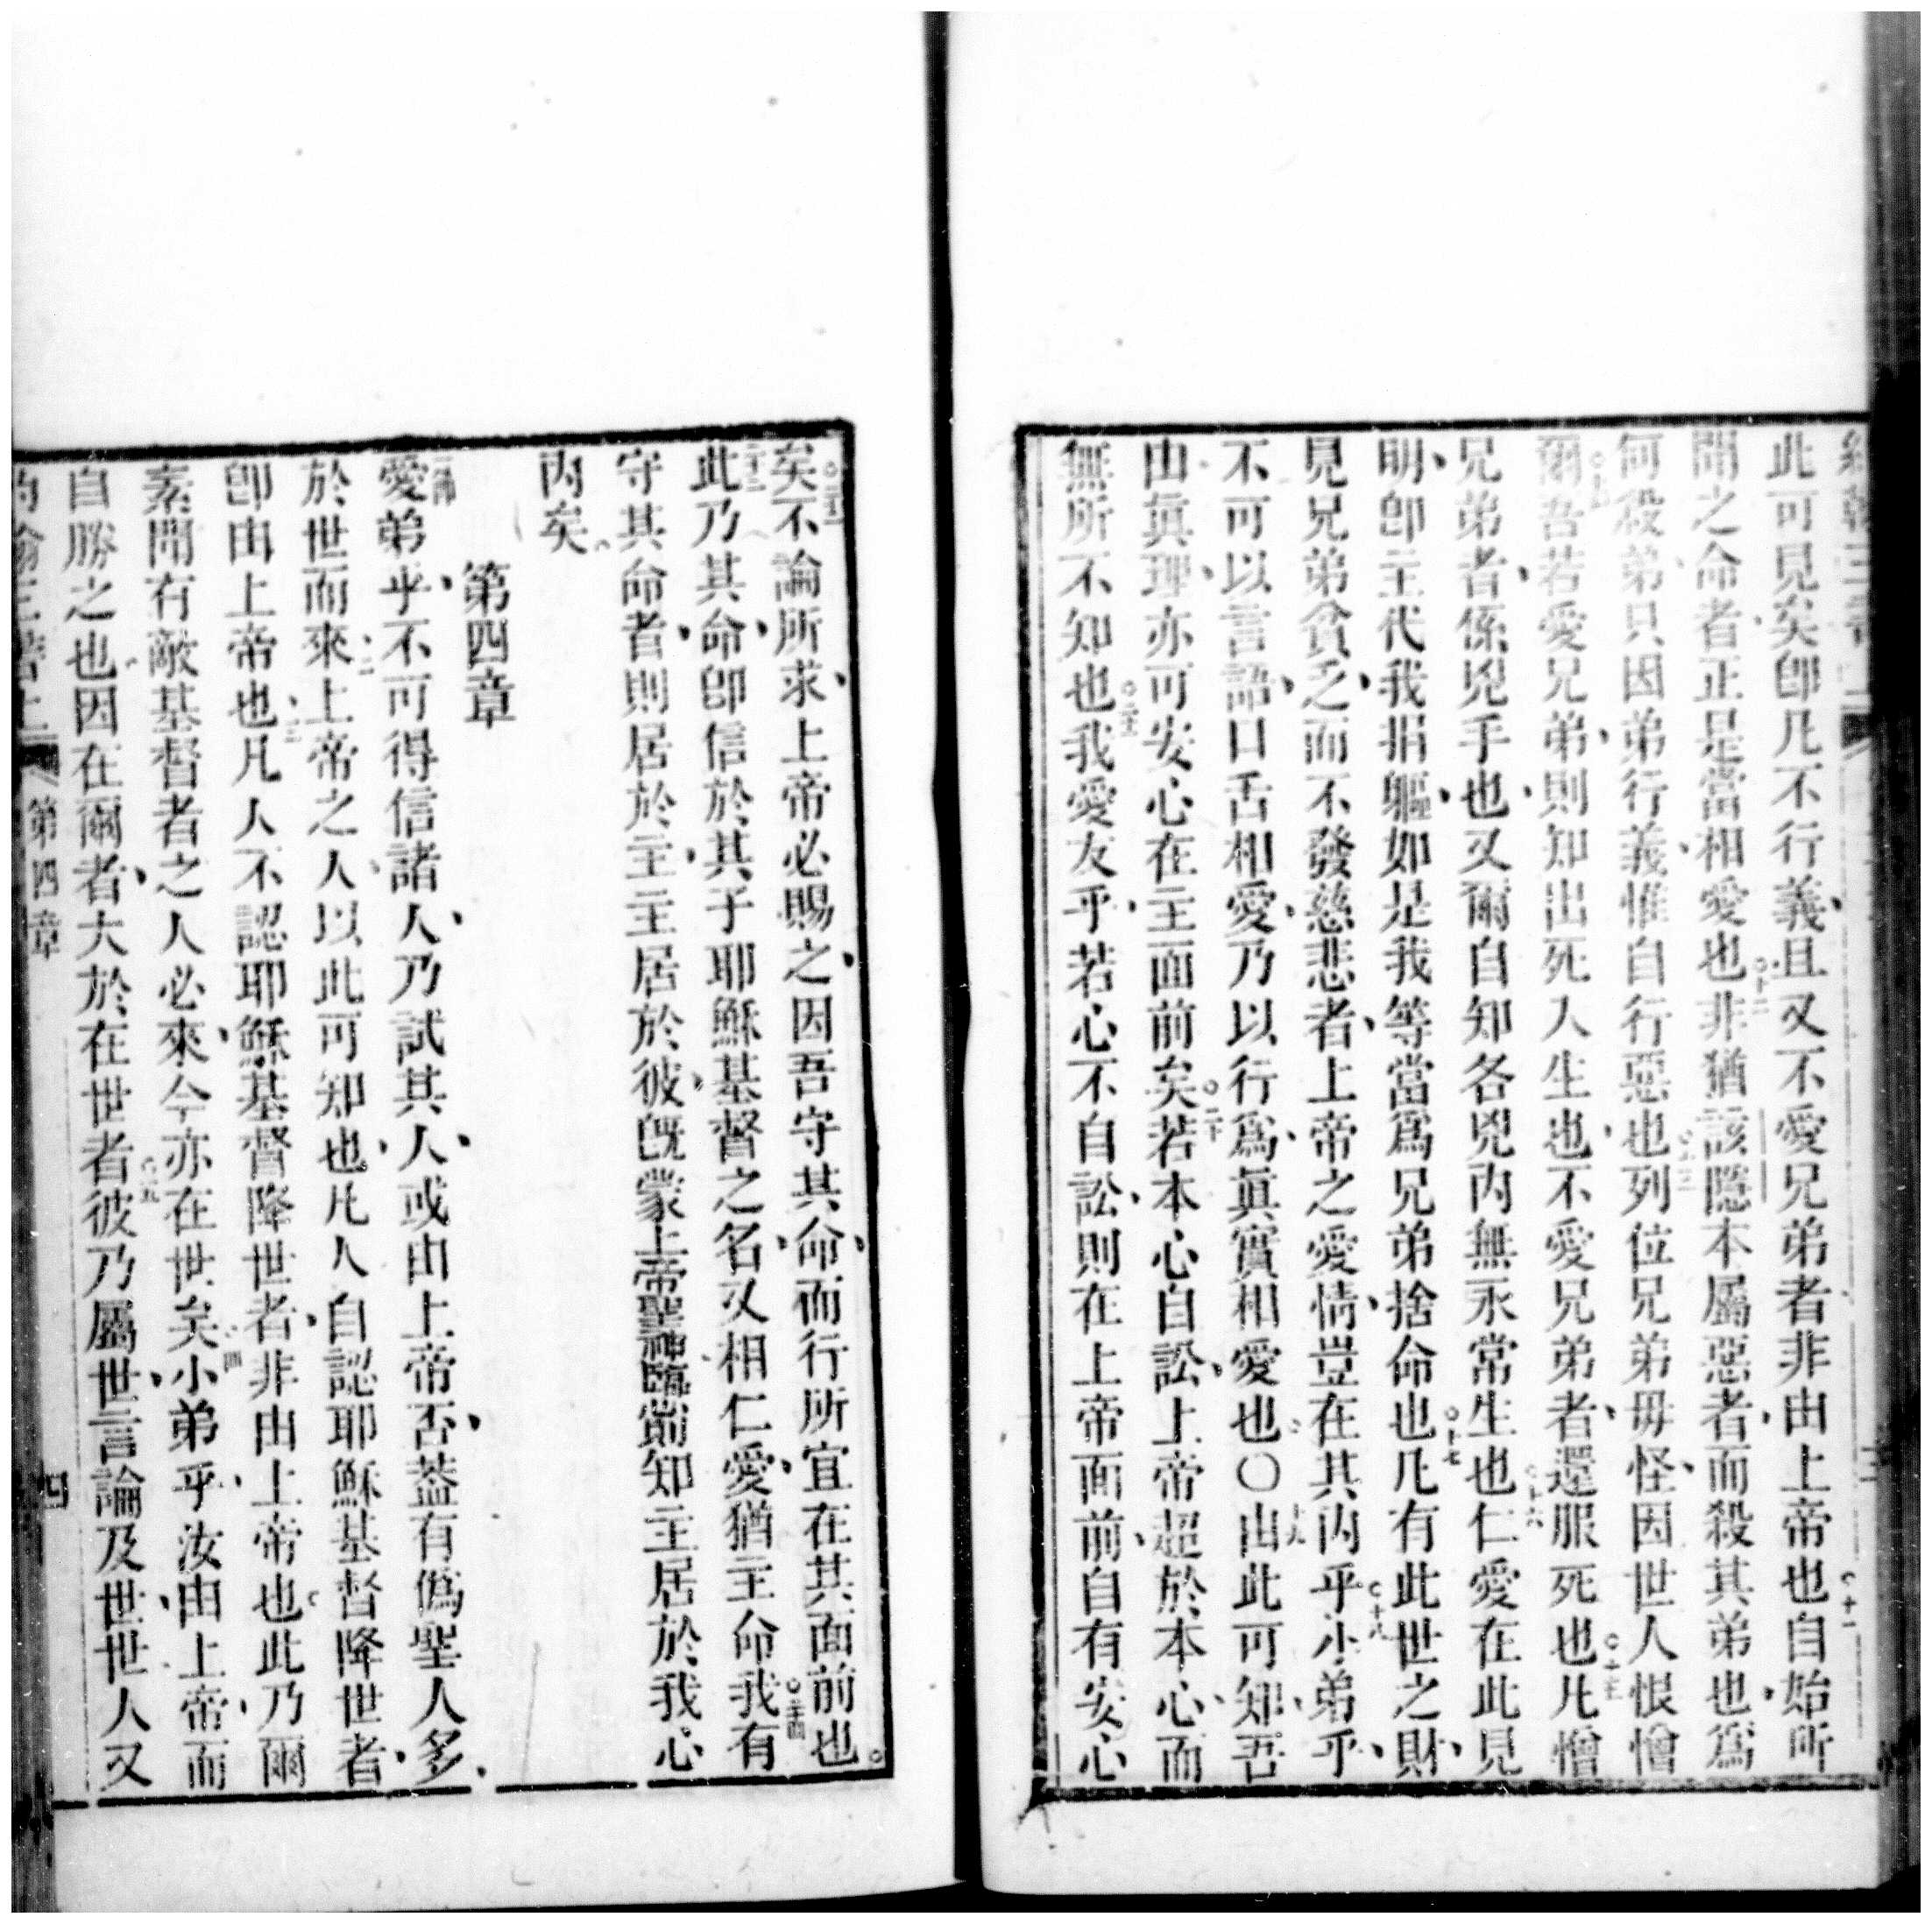 此可見矣卽凡不行義且又不愛兄弟者非由上帝也十一自始所
聞之命者正是當相愛也十二非猶該隱本屬惡者而殺其弟也爲
何殺弟只因弟行義惟自行惡也十三列位兄弟毋怪因世人恨憎
爾十四吾若愛兄弟則知出死入生也不愛兄弟者還服死也十五凡憎
兄弟者係兇手也又爾自知各兇內無永常生也十六仁愛在此見
明卽主代我捐軀如是我等當爲兄弟捨命也十七凡有此世之財
見兄弟貧乏而不發慈悲者上帝之愛情豈在其內乎十八小弟乎
不可以言語口舌相愛乃以行爲眞實相愛也〇十九由此可知吾
由眞理亦可安心在主面前矣二十若本心自訟上帝超於本心而
無所不知也二十一我愛友乎若心不自訟則在上帝面前自有安心
矣二十二不論所求上帝必賜之因吾守其命而行所宜在其面前也
二十三此乃其命卽信於其子耶穌基督之名又相仁愛猶主命我有二十四
守其命者則居於主主居於彼旣蒙上帝聖神臨㒸知主居於我心
內矣
第四章
一節愛弟乎不可得信諸人乃試其人或由上帝否葢有僞聖人多
於世而來二上帝之人以此可知也凡人自認耶穌基督降世者
卽由上帝也三凡人不認耶穌基督降世者非由上帝也此乃爾
素聞有敵基督者之人必來今亦在世矣四小弟乎汝由上帝而
自勝之也因在爾者大於在世者五彼乃屬世言論及世世人又
第四章
四